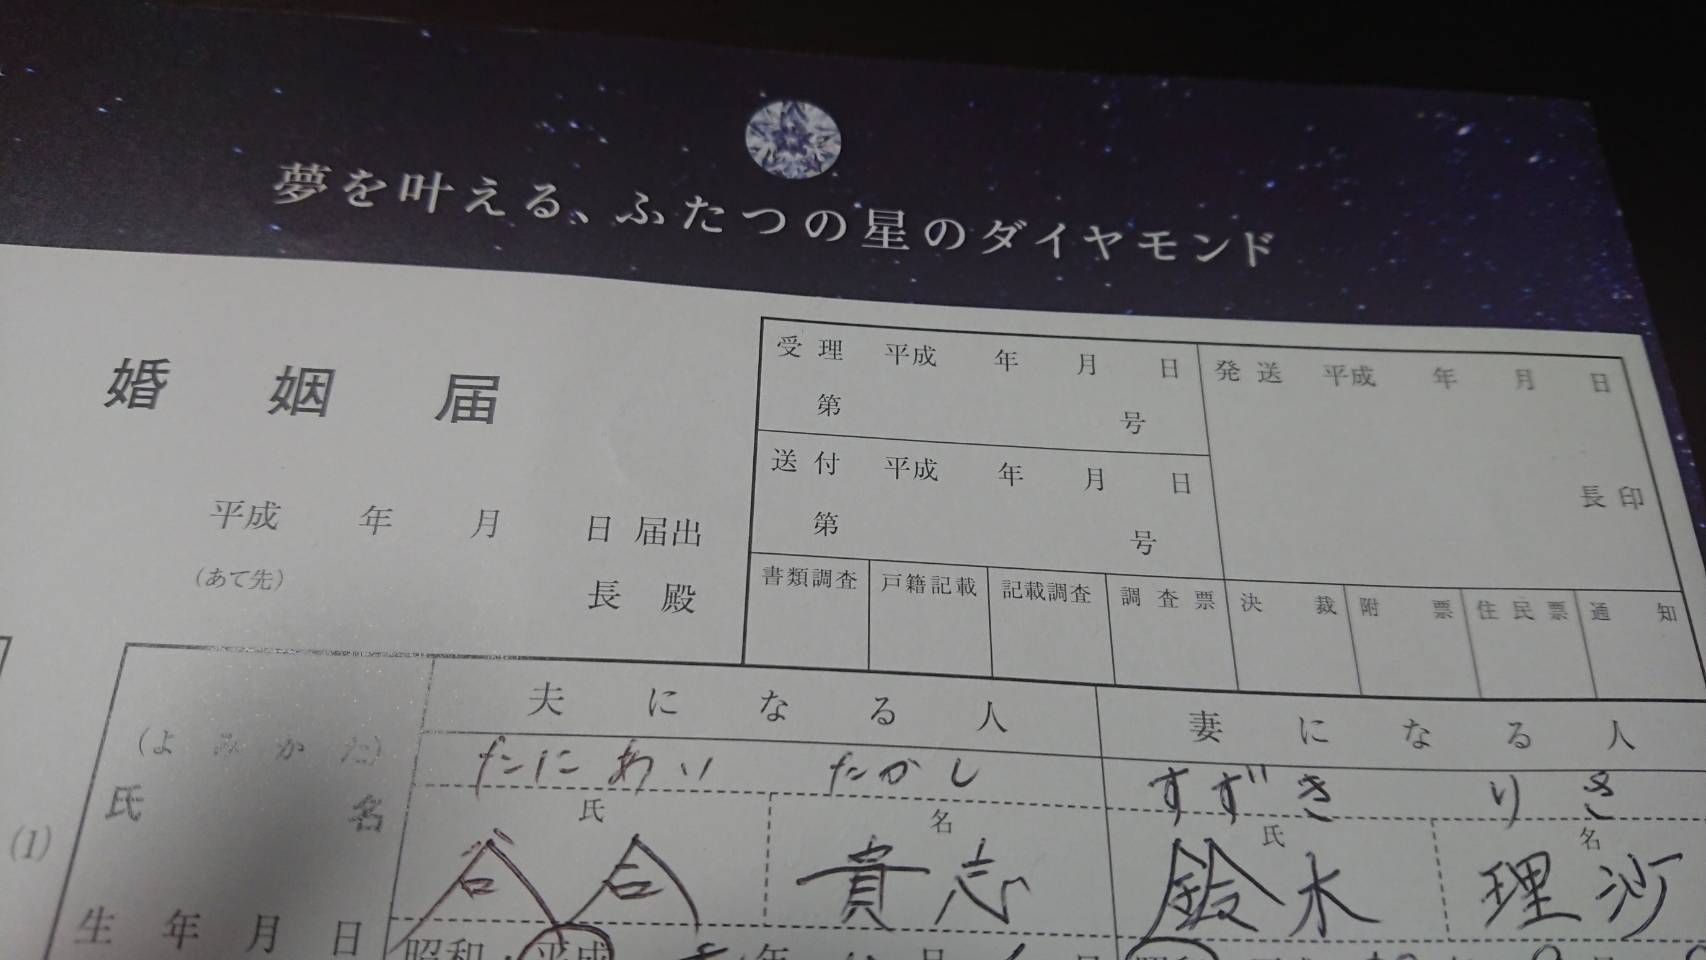 夢を叶える、ふたつの星のダイヤモンド
婚姻届
平成 年 月 日 届出
(あて先)
長 殿
受理 平成 年 月 日
第 号
送付 平成 年 月 日
第 号
発送 平成 年 月 日
長印
書類調査 戸籍記載 記載調査 調査票 決裁 附票 住民票 通知
夫になる人 妻になる人
(よみかた) たにあい たかし すずき りさ
(1) 氏名 氏 名 氏 名
谷合 貴志 鈴木 理沙
生年月日 昭和・平成 年 月 日